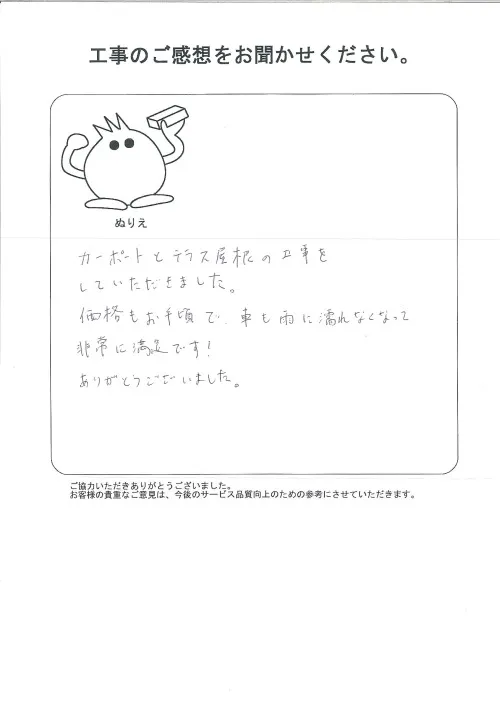 工事のご感想をお聞かせください。
ぬりえ
カーポートとテラス屋根の工事を
していただきました。
価格もお手頃で、車も雨に濡れなくなって
非常に満足です!
ありがとうございました。
ご協力いただきありがとうございました。
お客様の貴重なご意見は、今後のサービス品質向上のための参考にさせていただきます。